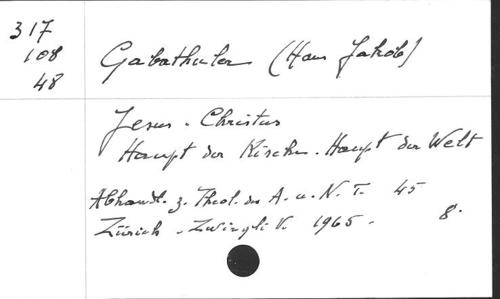 317
108
48
Gabathuler (Hans Jakob)
Jesus - Christus
Haupt der Kirche - Haupt der Welt
Abhandl. z. Theol. des A. u. N. T. 45
Zürich - Zwingli V. 1965 - 8°.